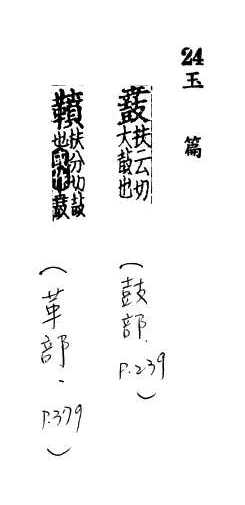 24 玉 篇
鼖 扶云切
大鼓也
(鼓部. P.239)
扶分切鼓
也或作鼖
(革部. P.379)